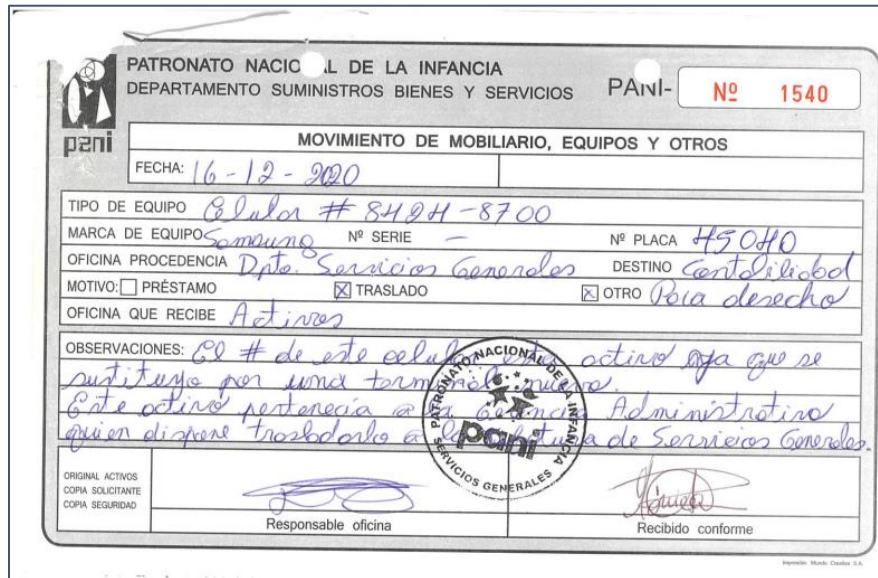 PATRONATO NACIONAL DE LA INFANCIA
DEPARTAMENTO SUMINISTROS BIENES Y SERVICIOS
PANI- Nº 1540
pani
MOVIMIENTO DE MOBILIARIO, EQUIPOS Y OTROS
FECHA: 16-12-2020
TIPO DE EQUIPO Celular # 8424-8700
MARCA DE EQUIPO Samsung Nº SERIE — Nº PLACA 45040
OFICINA PROCEDENCIA Dpto. Servicios Generales DESTINO Contabilidad
MOTIVO: PRÉSTAMO X TRASLADO X OTRO Para desecho
OFICINA QUE RECIBE Activos
OBSERVACIONES: El # de este celular esta activo ya que se
sustituyo por una terminal nueva.
Este activo pertenecía a la Gerencia Administrativa
quien dispone trasladarlo a la Jefatura de Servicios Generales.
PATRONATO NACIONAL DE LA INFANCIA
pani
SERVICIOS GENERALES
ORIGINAL ACTIVOS
COPIA SOLICITANTE
COPIA SEGURIDAD
Responsable oficina
Recibido conforme